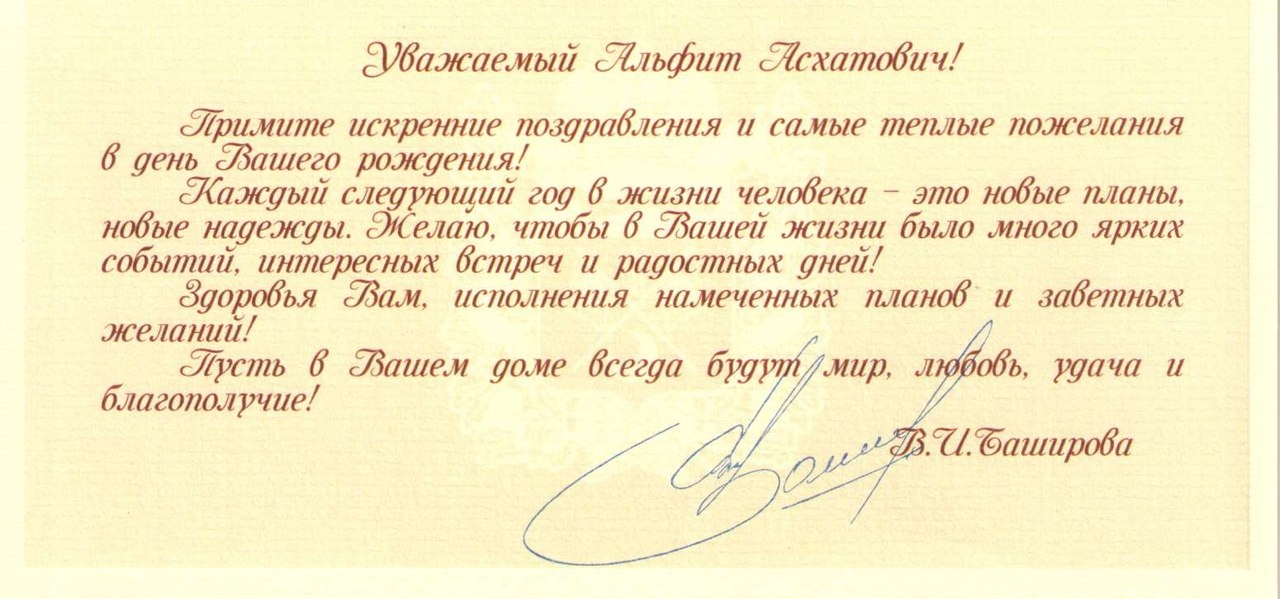 Уважаемый Альфит Асхатович!
Примите искренние поздравления и самые теплые пожелания
в день Вашего рождения!
Каждый следующий год в жизни человека – это новые планы,
новые надежды. Желаю, чтобы в Вашей жизни было много ярких
событий, интересных встреч и радостных дней!
Здоровья Вам, исполнения намеченных планов и заветных
желаний!
Пусть в Вашем доме всегда будут мир, любовь, удача и
благополучие!
В.И.Баширова